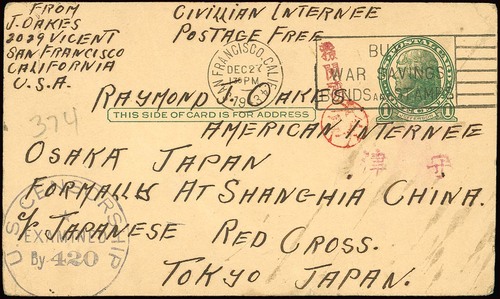 FROM
J. OAKES
2029 VICENT
SAN FRANCISCO
CALIFORNIA
U.S.A.
CIVILIAN INTERNEE
POSTAGE FREE
SAN FRANCISCO, CALIF.
DEC 27
PM
BUY
WAR SAVINGS
BONDS AND STAMPS
1
1
374
RAYMOND J. OAKES
THIS SIDE OF CARD IS FOR ADDRESS
AMERICAN INTERNEE
OSAKA JAPAN
津 守
FORMALLY AT SHANGHIA CHINA.
C/o JAPANESE RED CROSS.
TOKYO JAPAN.
U.S. CENSORSHIP
EXAMINED
By 420